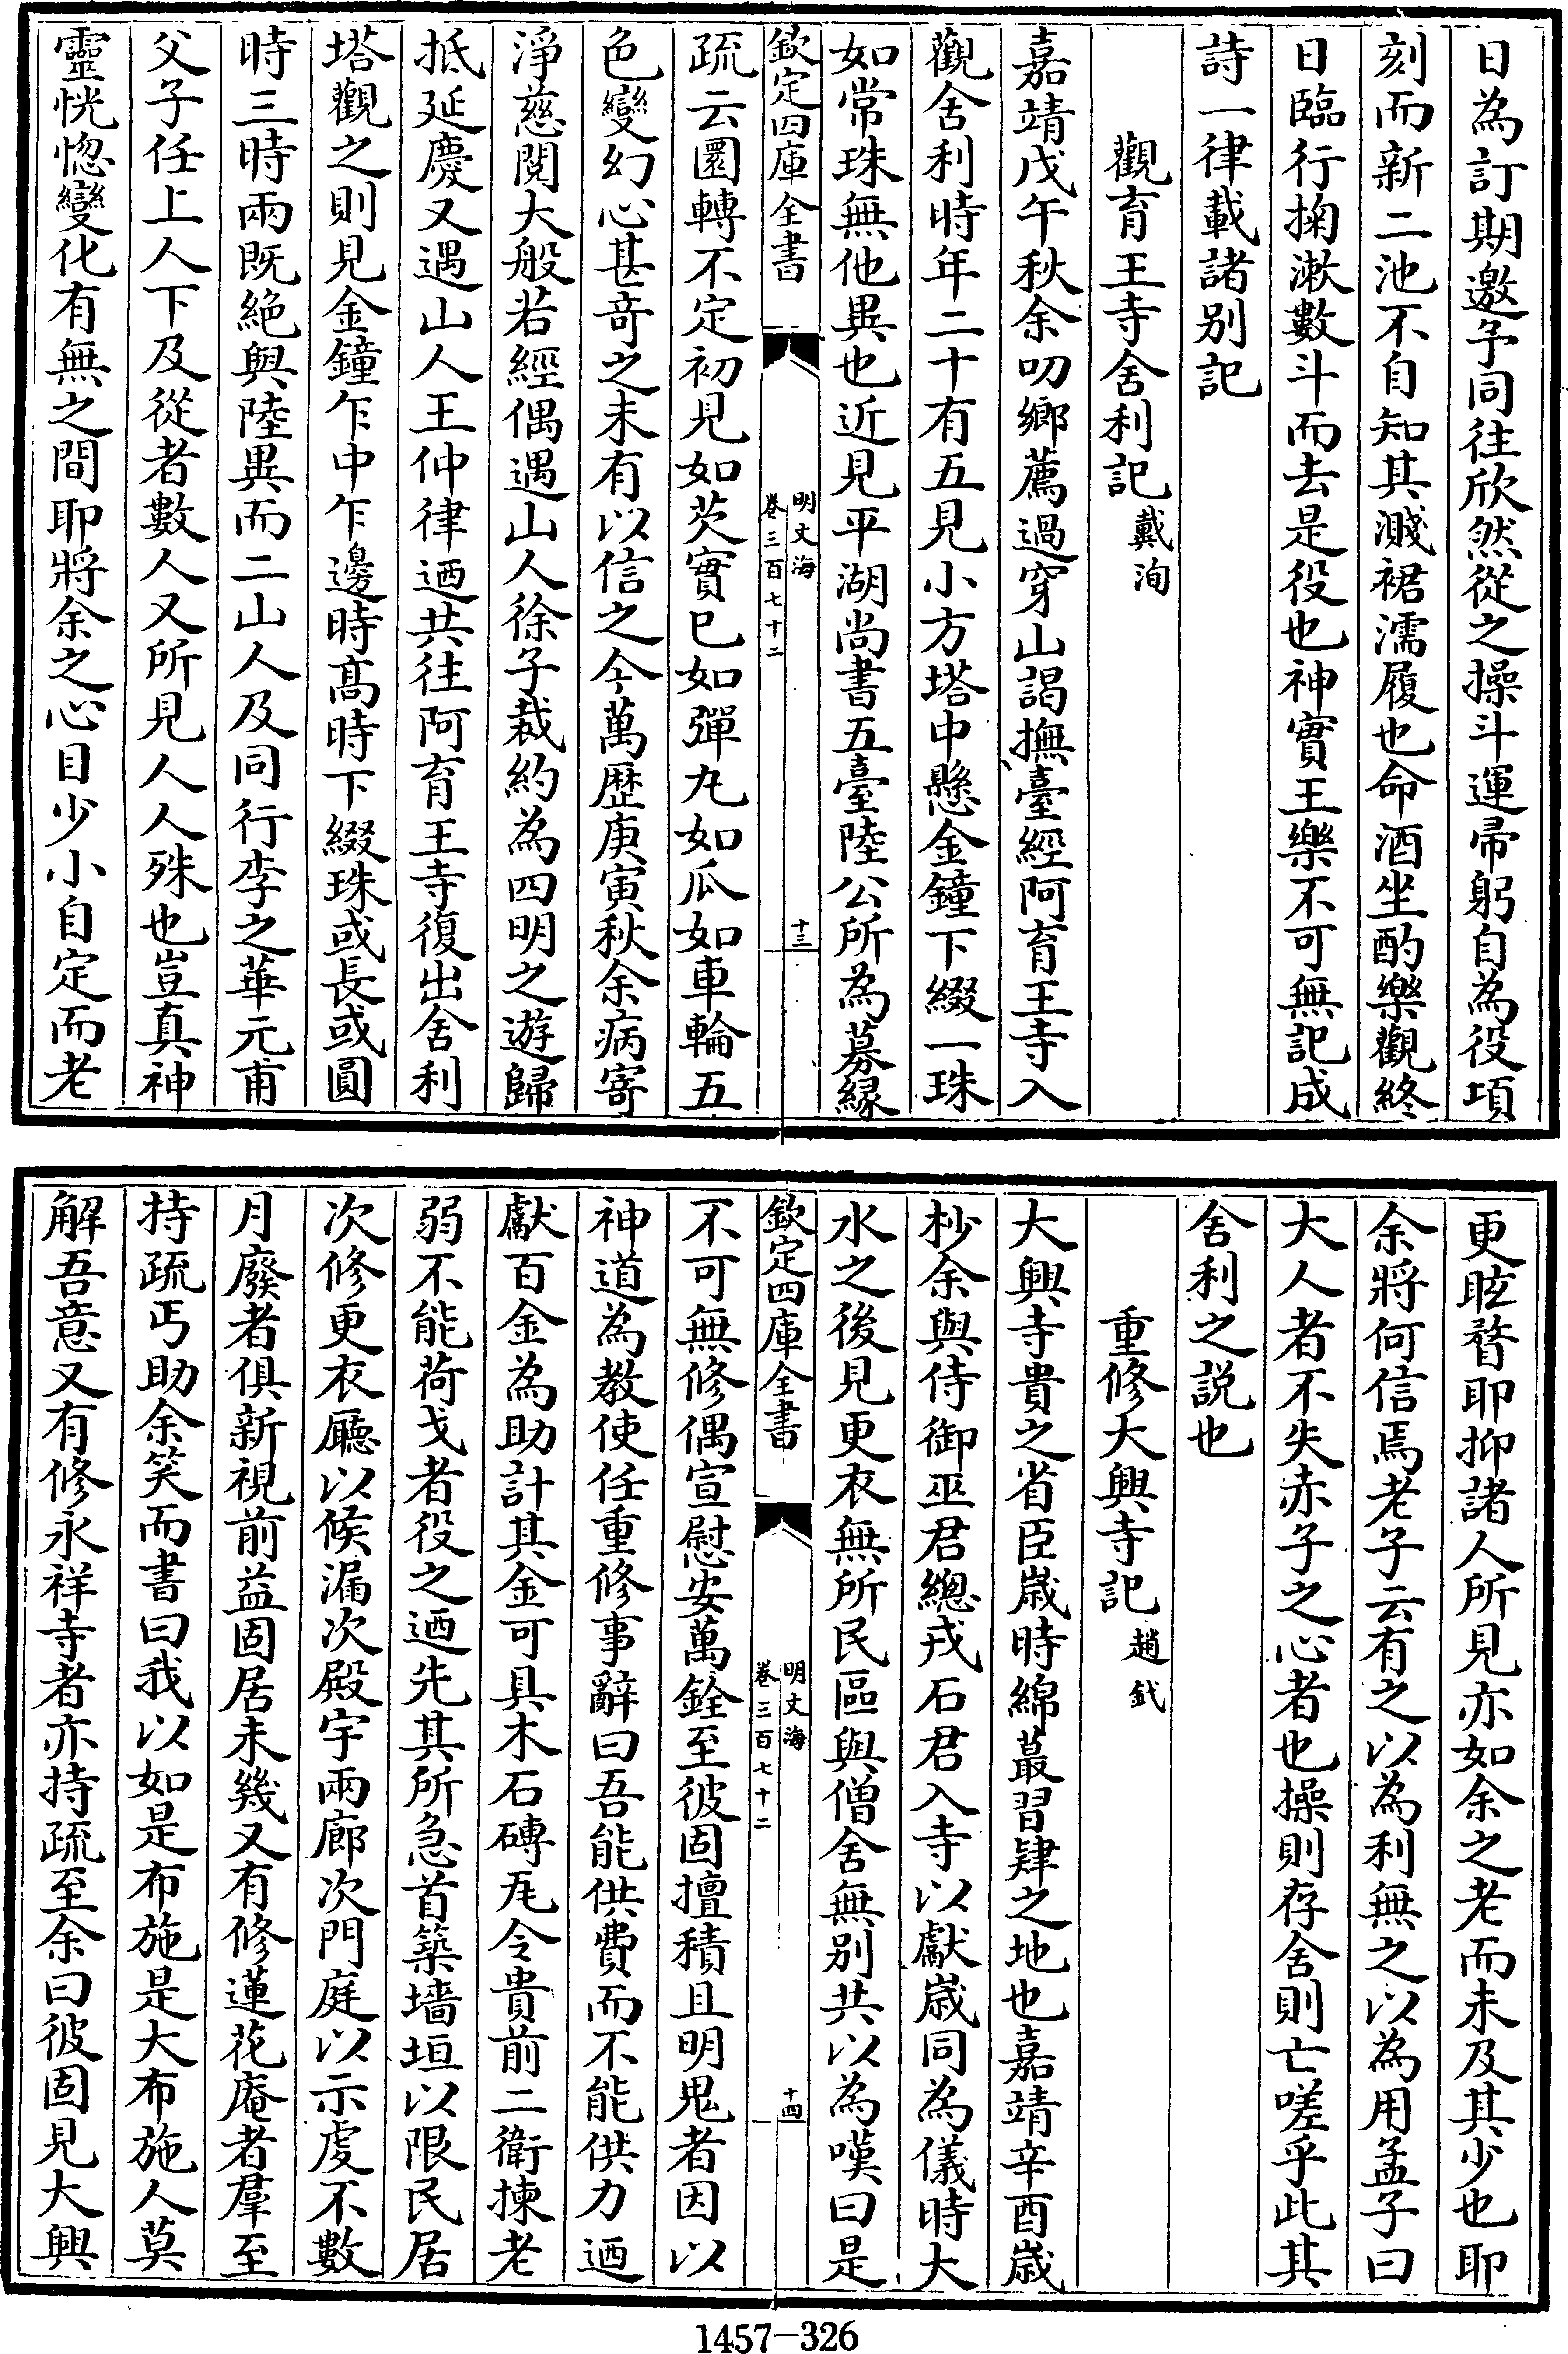 日為訂期邀予同往欣然從之操斗運帚躬自為役項
刻而新二池不自知其濺裙濡履也命酒坐酌樂觀終
日臨行掬漱數斗而去是役也神實王樂不可無記成
詩一律載諸别記
觀育王寺舍利記戴洵
嘉靖戊午秋余叨鄉薦過穿山謁撫臺經阿育王寺入
觀舍利時年二十有五見小方塔中懸金鐘下綴一珠
如常珠無他異也近見平湖尚書五臺陸公所為募縁
欽定四庫全書
明文海
卷三百七十二
十三
疏云圜轉不定初見如芡實已如彈丸如瓜如車輪五
色變幻心甚奇之未有以信之今萬歴庚寅秋余病寄
淨慈閱大般若經偶遇山人徐子裁約為四明之遊歸
抵延慶又遇山人王仲律迺共往阿育王寺復出舍利
塔觀之則見金鐘乍中乍邊時髙時下綴珠或長或圓
時三時兩既絶與陸異而二山人及同行李之華元甫
父子任上人下及從者數人又所見人人殊也豈真神
靈恍惚變化有無之間耶將余之心目少小自定而老
更眩瞀耶抑諸人所見亦如余之老而未及其少也耶
余將何信焉老子云有之以為利無之以為用孟子曰
大人者不失赤子之心者也操則存舍則亡嗟乎此其
舍利之説也
重修大興寺記趙釴
大興寺貴之省臣嵗時綿蕞習肄之地也嘉靖辛酉嵗
杪余與侍御巫君總戎石君入寺以獻嵗同為儀時大
水之後見更衣無所民區與僧舍無别共以為嘆曰是
欽定四庫全書
明文海
卷三百七十二
十四
不可無修偶宣慰安萬銓至彼固擅積且明鬼者因以
神道為教使任重修事辭曰吾能供費而不能供力迺
獻百金為助計其金可具木石磚瓦令貴前二衛揀老
弱不能荷戈者役之迺先其所急首築墻垣以限民居
次修更衣廳以候漏次殿宇兩廊次門庭以示䖍不數
月廢者俱新視前益固居未幾又有修蓮花庵者羣至
持疏丐助余笑而書曰我以如是布施是大布施人莫
解吾意又有修永祥寺者亦持疏至余曰彼固見大興
1457-326